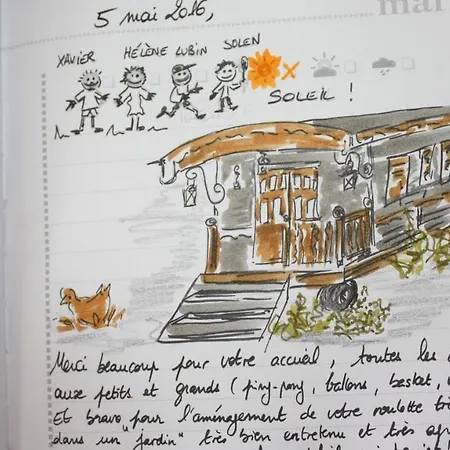 5 mai 2016,
mai
XAVIER HÉLÈNE LUBIN SOLEN
SOLEIL !
Merci beaucoup pour votre accueil, toutes les
aux petits et grands (ping-pong, ballons, basket,
Et bravo pour l'aménagement de votre roulotte
dans un "jardin" très bien entretenu et très